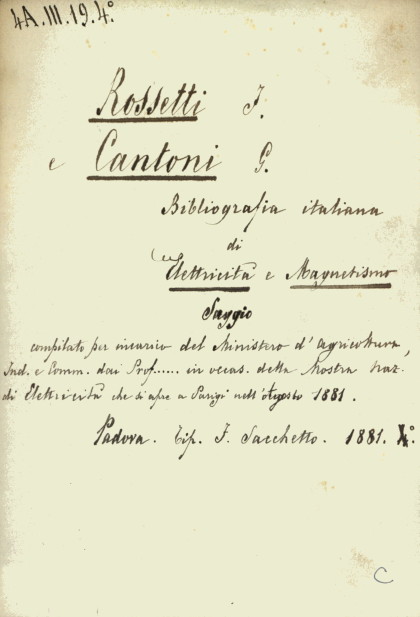 4A.III.19.4°
Rossetti F.
e Cantoni G.
Bibliografia italiana
di
Elettricità e Magnetismo
Saggio
compilato per incarico del Ministero d'agricoltura,
Ind. e Comm. dai Prof...... in occas. della Mostra Naz.
di Elettricità che si apre a Parigi nell'Agosto 1881.
Padova. Tip. F. Sacchetto. 1881. 4°.
C